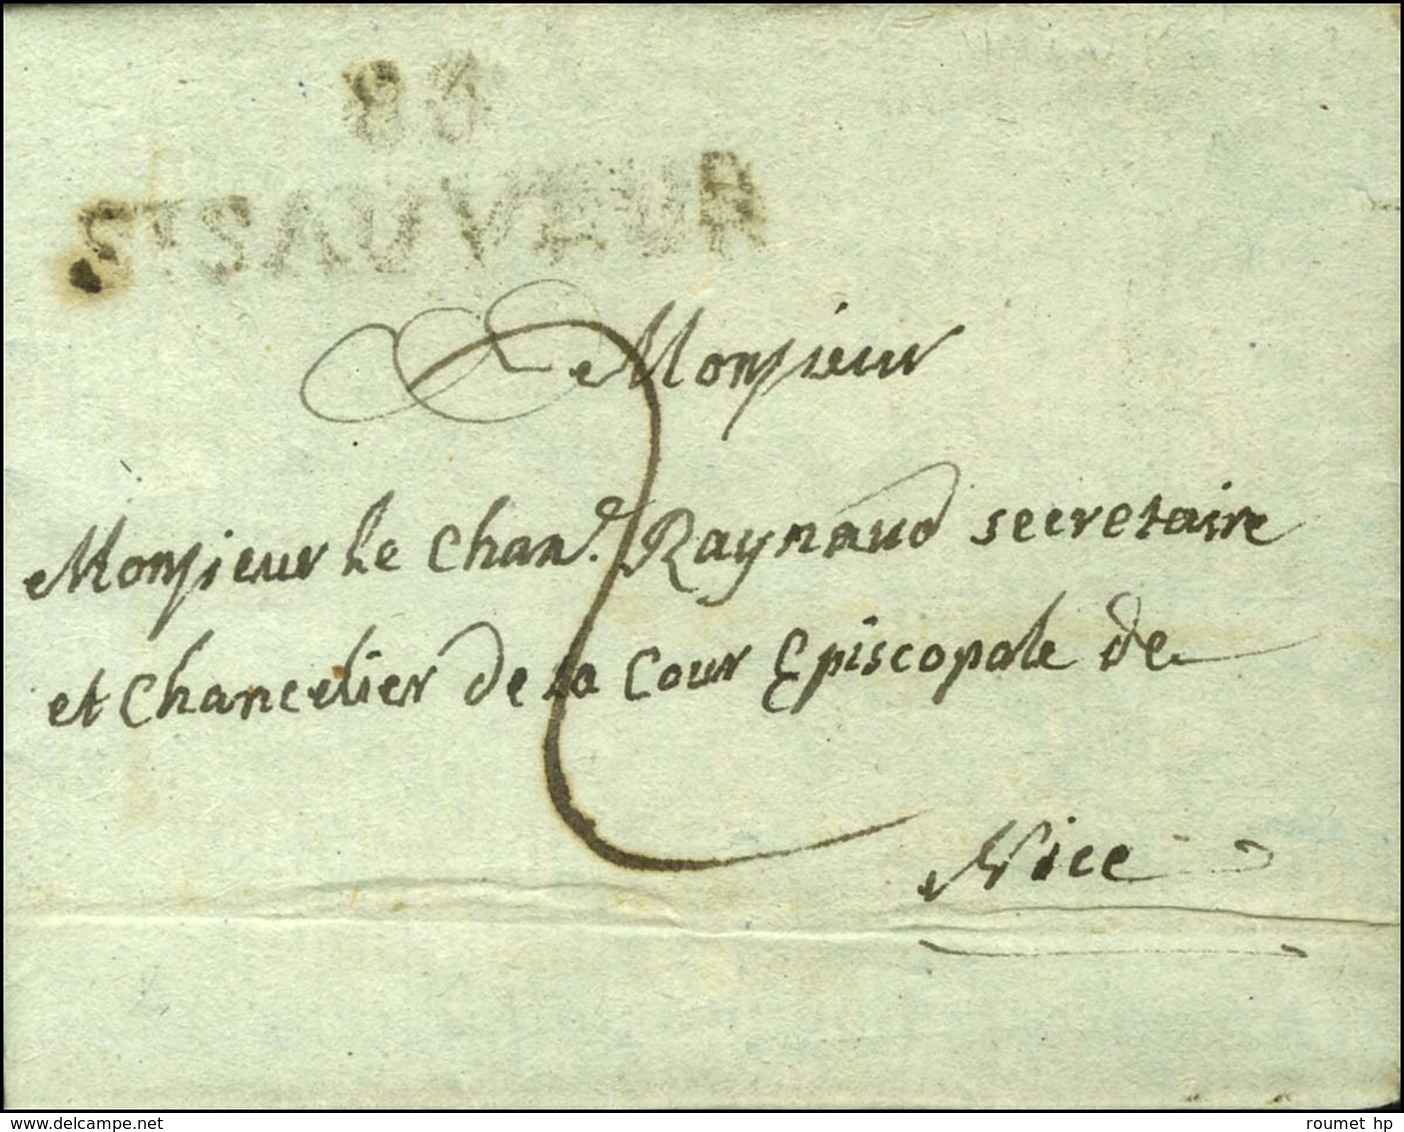 88
A Monsieur
Monsieur le Chan.e Raynaud secretaire
et Chancelier de la Cour Episcopale de
Nice
2
delcampe.net
roumet hp